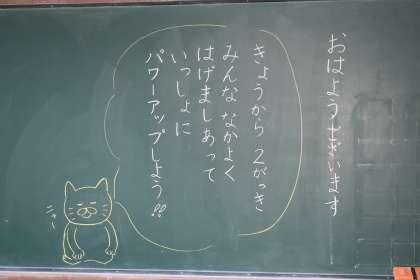 おはようございます
きょうから 2がっき
みんな なかよく
はげましあって
いっしょに
パワーアップしよう!!
ニャー